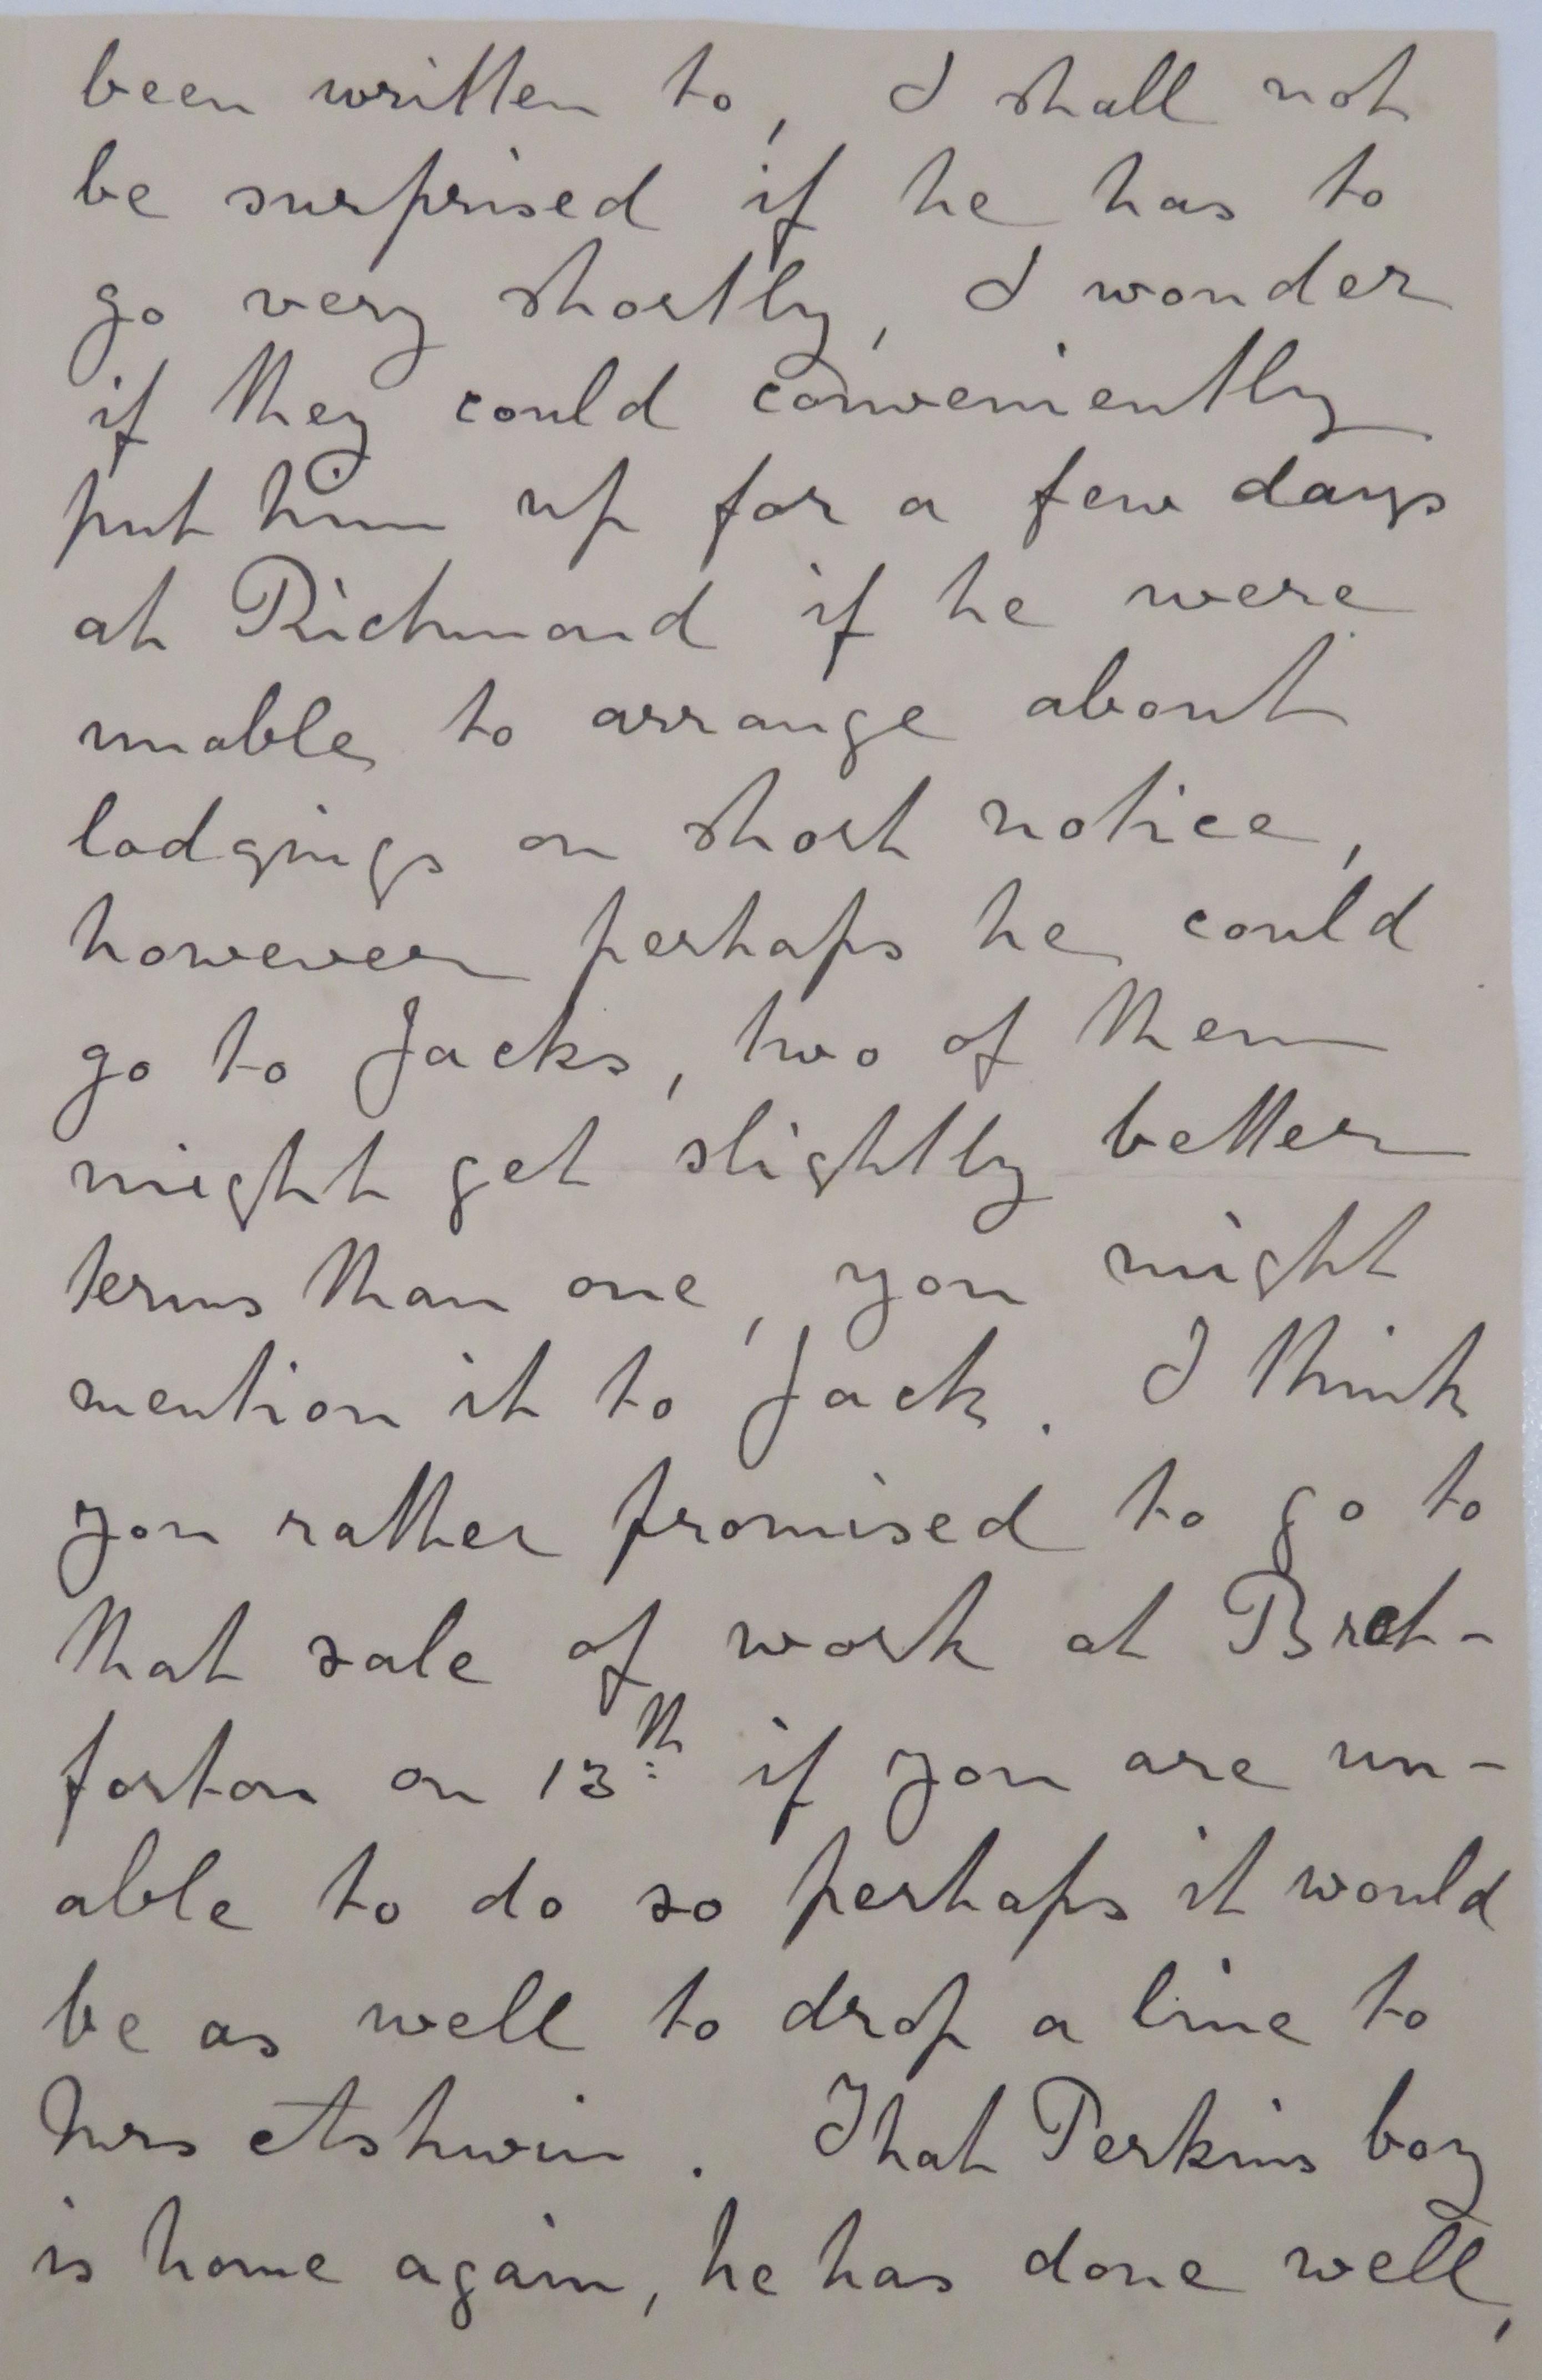 been written to, I shall not
be surprised if he has to
go very shortly, I wonder
if they could conveniently
put him up for a few days
at Richmond if he were
unable to arrange about
lodgings on short notice,
however perhaps he could
go to Jacks, two of them
might get slightly better
terms than one, you might
mention it to Jack. I think
you rather promised to go to
that sale of work at Bret-
forton on 13th if you are un-
able to do so perhaps it would
be as well to drop a line to
Mrs Ashwin. That Perkins boy
is home again, he has done well,